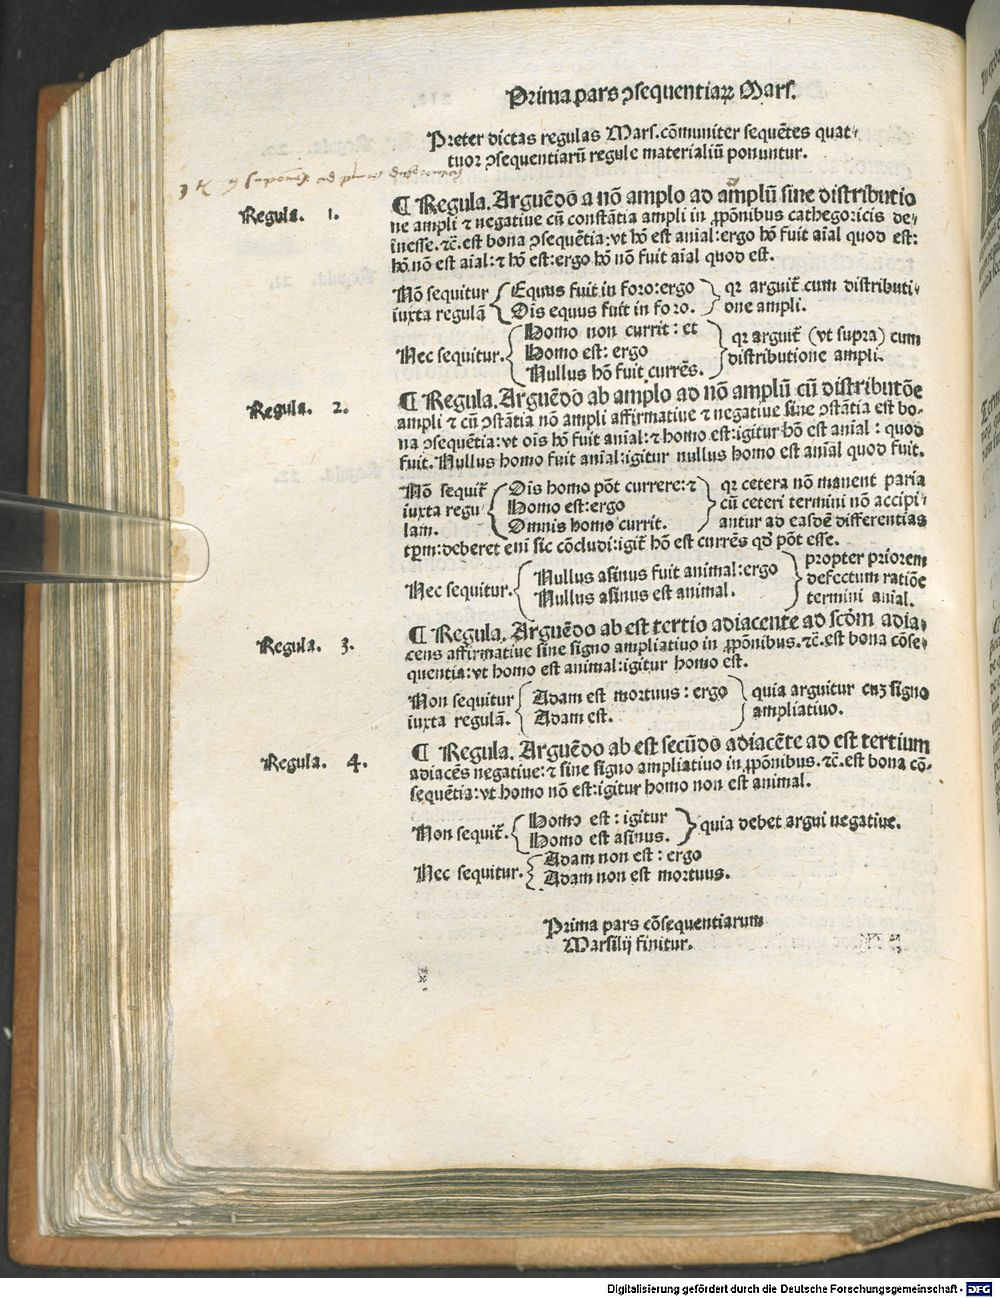 Prima pars ↄsequentiaꝝ Mars.
Preter dictas regulas Mars. cōmuniter sequētes quat⸗
tuor ↄsequentiarū regule materialiū ponuntur.
Regula. 1.
¶ Regula. Arguēdō a nō amplo ad amplū sine distributio
ne ampli ⁊ negatiue cū constātia ampli in ꝓpōnibus cathegoricis de⸗
inesse. ⁊c̄. est bona ↄsequētia: vt hō est anial: ergo hō fuit aīal quod est:
hō nō est aīal: ⁊ hō est: ergo hō nō fuit aīal quod est.
Nō sequitur iuxta regulā { Equus fuit in foro: ergo
Ois equus fuit in foro. } qꝛ arguit̄ cum distributi⸗
one ampli.
Nec sequitur. { Homo non currit: et
Homo est: ergo
Nullus hō fuit currēs. } qꝛ arguit̄ (vt supra) cum
distributione ampli.
Regula. 2.
¶ Regula. Arguēdo ab amplo ad nō amplū cū distributōe
ampli ⁊ cū ↄstātia nō ampli affirmatiue ⁊ negatiue sine ↄstātia est bo⸗
na ↄsequētia: vt oīs hō fuit anial: ⁊ homo est: igitur hō est anial: quod
fuit. Nullus homo fuit anial: igitur nullus homo est anīal quod fuit.
Nō sequit̄ iuxta regu lam. { Ois homo pōt currere: ⁊
Homo est: ergo
Omnis homo currit. } qꝛ cetera nō manent paria
cū ceteri termini nō accipi⸗
antur ad easdē differentias
tꝑm: deberet enī sic cōcludi: igit̄ hō est currēs qd̄ pōt esse.
Nec sequitur. { Nullus asinus fuit animal: ergo
Nullus asinus est animal. } propter priorem
defectum ratiōe
termini anial.
Regula. 3.
¶ Regula. Arguēdo ab est tertio adiacente ad scd̄m adia⸗
cens affirmatiue sine signo ampliatiuo in ꝓpōnibus. ⁊c̄. est bona cōse⸗
quentia: vt homo est animal: igitur homo est.
Non sequitur iuxta regulā. { Adam est mortuus: ergo
Adam est. } quia arguitur cuꝫ signo
ampliatiuo.
Regula. 4.
¶ Regula. Arguēdo ab est secūdo adiacēte ad est tertium
adiacēs negatiue: ⁊ sine signo ampliatiuo in ꝓpōnibus. ⁊c̄. est bona cō⸗
sequētia: vt homo nō est: igitur homo non est animal.
Non sequit̄. { Homo est: igitur
Homo est asinus. } quia debet argui negatiue.
Nec sequitur. { Adam non est: ergo
Adam non est mortuus.
Prima pars cōsequentiarum
Marsilij finitur.
Digitalisierung gefördert durch die Deutsche Forschungsgemeinschaft - DFG